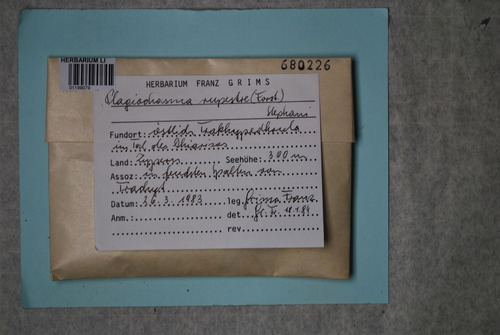 680226
HERBARIUM LI
HERBARIUM FRANZ GRIMS
Plagiochasma rupestre (Forst.)
Stephani
Fundort: östlich
im Tal des
Land: Zypern Seehöhe: 300 m
Assoz: in feuchten Spalten von
Trachyt
Datum: 26.3.1983 leg. Grims Franz
Anm.: det. Gr. F. 18.1.84
rev.